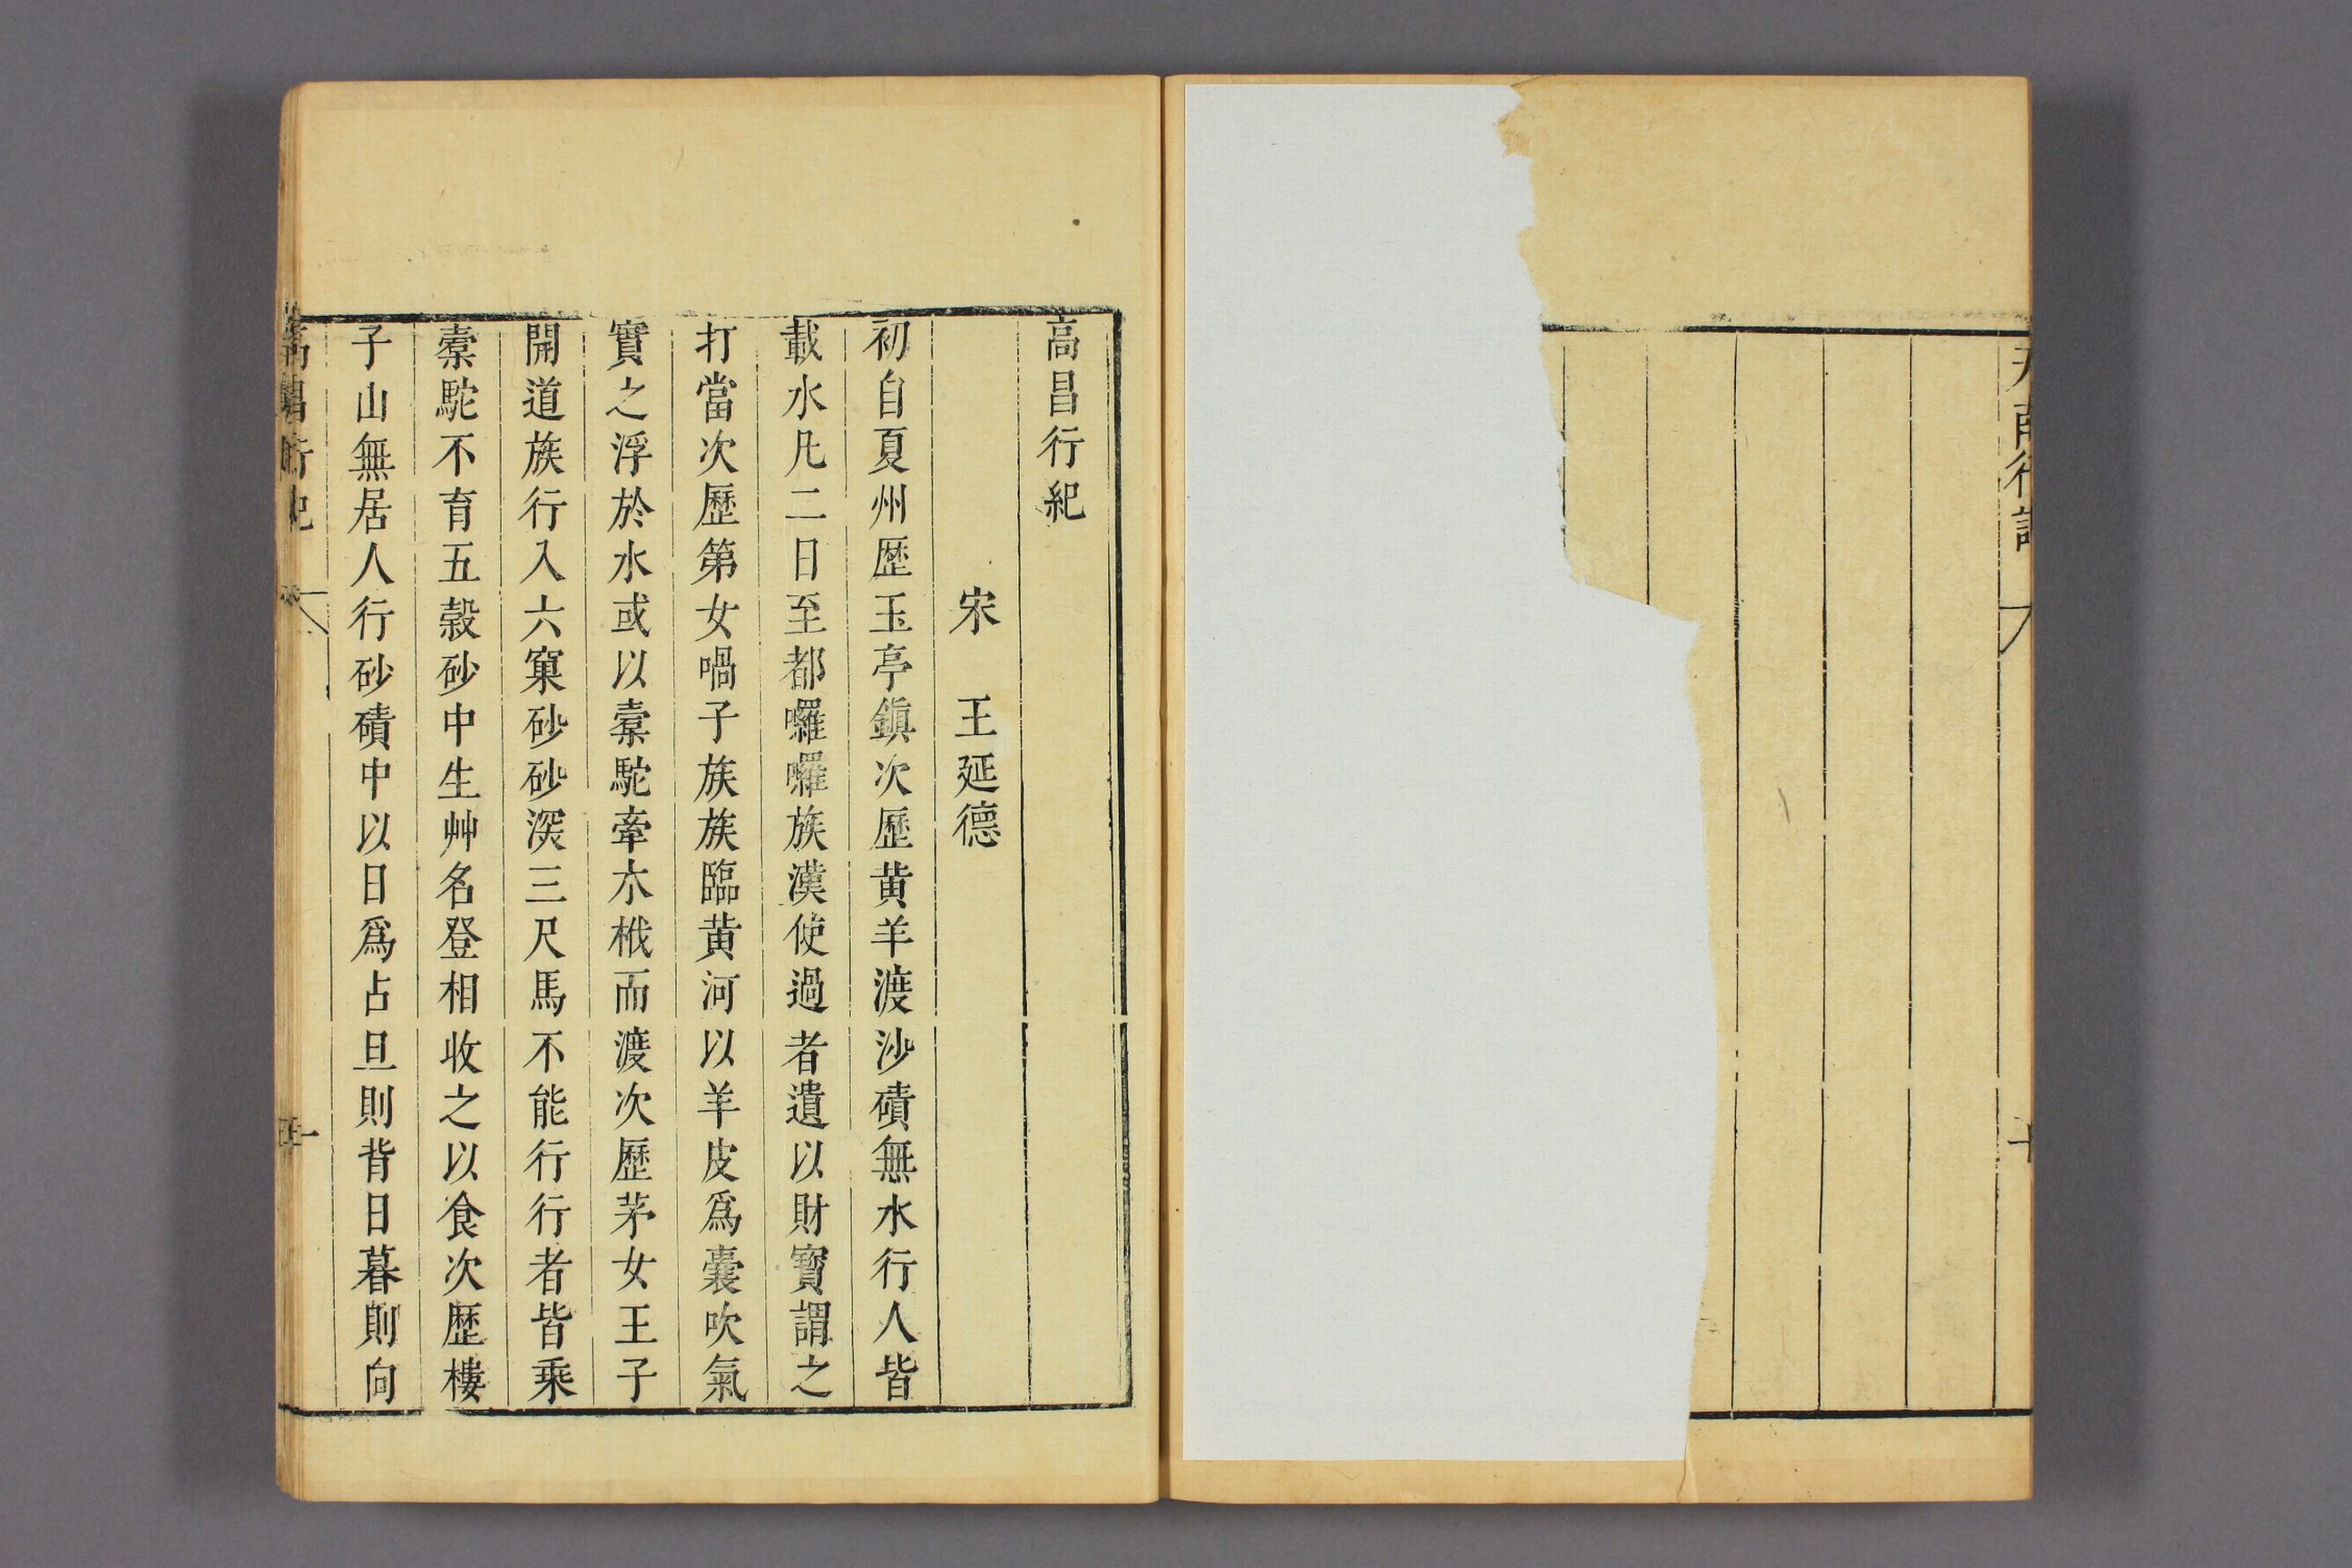 高昌行紀
宋　王延德
初自夏州歷玉亭鎮次歷黃羊渡沙磧無水行人皆
載水凡二日至都囉囉族漢使過者遺以財寶謂之
打當次歷第女喎子族族臨黃河以羊皮爲囊吹氣
實之浮於水或以橐駝牽木栰而渡次歷茅女王子
開道族行入六窠砂砂深三尺馬不能行行者皆乘
橐駝不育五穀砂中生艸名登相收之以食次歷樓
子山無居人行砂磧中以日爲占旦則背日暮則向
高昌行紀
一